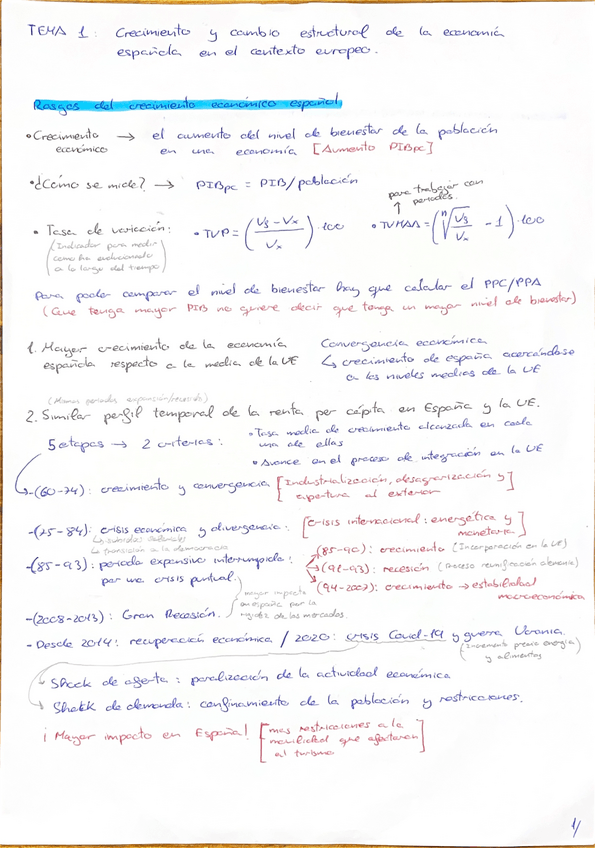 TEMA 1: Crecimiento y cambio estructural de la economía
española en el contexto europeo.
Rasgos del crecimiento económico español
• Crecimiento económico → el aumento del nivel de bienestar de la población
en una economía [Aumento PIBpc]
• ¿Cómo se mide? → PIBpc = PIB/población
para trabajar con
periodos.
• Tasa de variación: • TVP = (Vs - Vx / Vx) · 100 • TVMAA = (ⁿ√Vs/Vx - 1) · 100
(Indicador para medir
como ha evolucionado
a lo largo del tiempo)
Para poder comparar el nivel de bienestar hay que calcular el PPC/PPA
(Que tenga mayor PIB no quiere decir que tenga un mayor nivel de bienestar)
1. Mayor crecimiento de la economía
española respecto a la media de la UE
Convergencia económica
↳ crecimiento de españa acercándose
a los niveles medios de la UE
(Mismos periodos expansión/recesión)
2. Similar perfil temporal de la renta per cápita en España y la UE.
5 etapas → 2 criterios:
• Tasa media de crecimiento alcanzada en cada
una de ellas
• Avance en el proceso de integración en la UE
-(60-74): crecimiento y convergencia [Industrialización, desagrarización y
apertura al exterior]
-(75-84): crisis económica y divergencia: [crisis internacional: energética y
monetaria]
↳ subidas salariales
↳ transición a la democracia
-(85-93): periodo expansivo interrumpido
por una crisis puntual.
→ (85-90): crecimiento (Incorporación en la UE)
→ (91-93): recesión (Proceso reunificación alemania)
→ (94-2007): crecimiento → estabilidad
macroeconómica
-(2008-2013): Gran Recesión.
mayor impacto
en españa por la
de los mercados.
- Desde 2014: recuperación económica / 2020: crisis Covid-19 y guerra Ucrania.
(Incremento precio energía
y alimentos)
↳ Shock de oferta: paralización de la actividad económica
↳ Shock de demanda: confinamiento de la población y restricciones.
¡Mayor impacto en España! [mas restricciones a la
movilidad que afectaron
al turismo]
1/